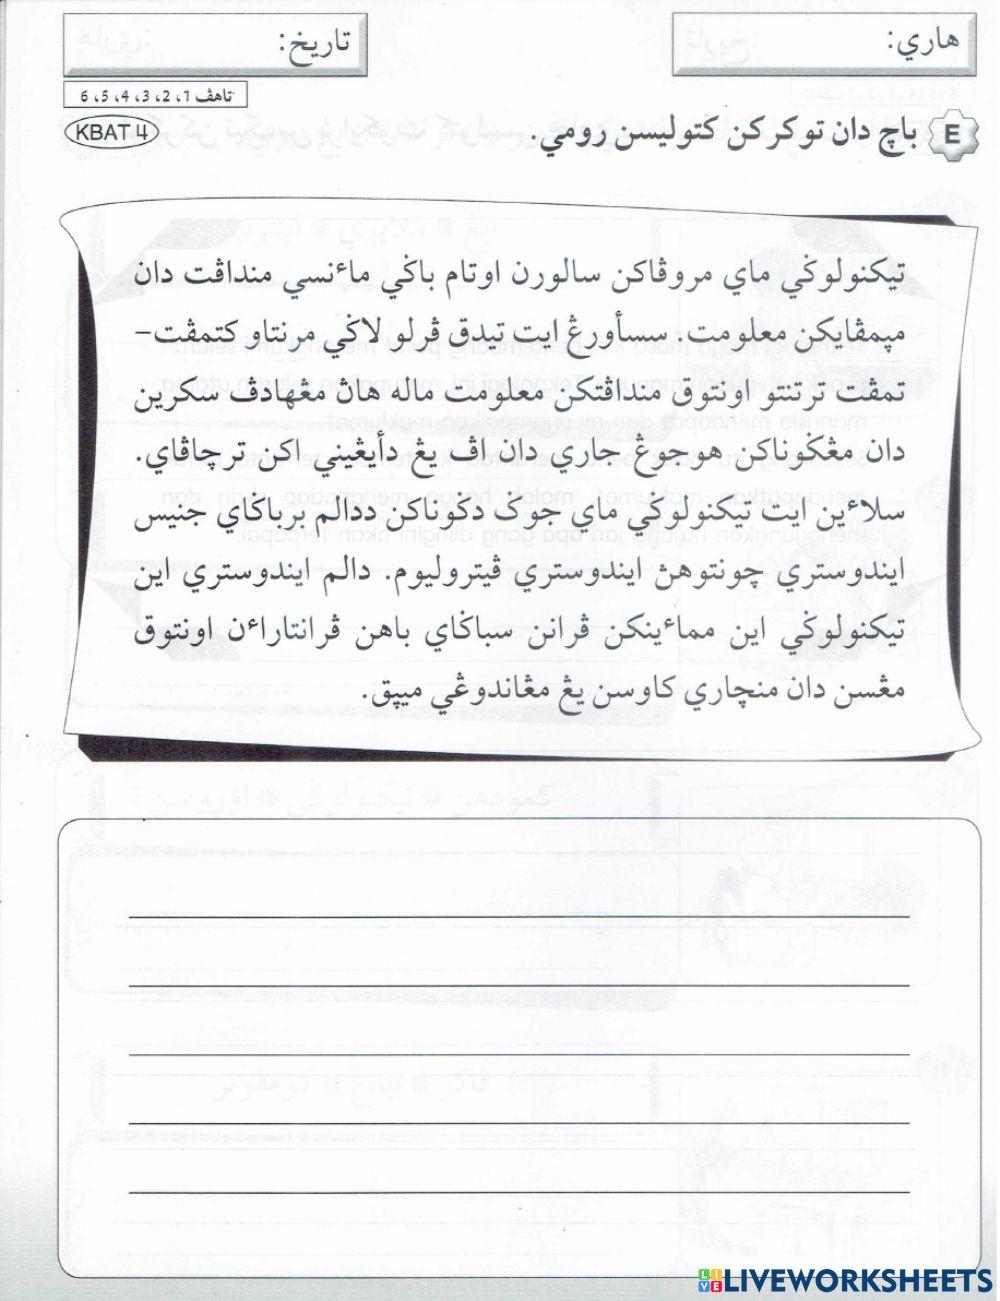 هاري:
تاريخ:
تاهڤ 1، 2، 3، 4، 5، 6
KBAT 4
E باچ دان توكركن كتوليسن رومي.
تيكنولوݢي ماي مروڤاكن سالورن اوتام باݢي ماءنسي منداڤت دان
مڽمڤايكن معلومت. سسأورڠ ايت تيدق ڤرلو لاݢي مرنتاو كتمڤت-
تمڤت ترتنتو اونتوق منداڤتكن معلومت ماله هاڽ مڠهادڤ سكرين
دان مڠݢوناكن هوجوڠ جاري دان اڤ يڠ دأيڠيني اكن ترچاڤاي.
سلاءين ايت تيكنولوݢي ماي جوݢ دݢوناكن ددالم برباݢاي جنيس
ايندوستري چونتوهڽ ايندوستري ڤيتروليوم. دالم ايندوستري اين
تيكنولوݢي اين مماءينكن ڤرانن سباݢاي باهن ڤرانتاراءن اونتوق
مڠسن دان منچاري كاوسن يڠ مڠاندوڠي ميڽق.
LIVE LIVEWORKSHEETS